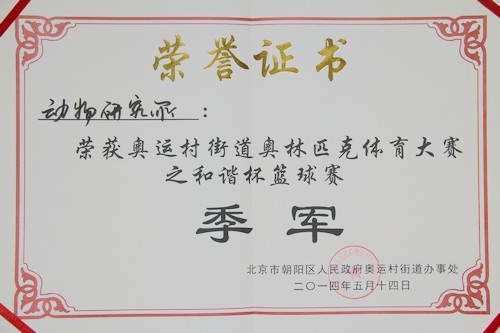 荣誉证书
动物研究所：
荣获奥运村街道奥林匹克体育大赛
之和谐杯篮球赛
季军
北京市朝阳区人民政府奥运村街道办事处
二〇一四年五月十四日